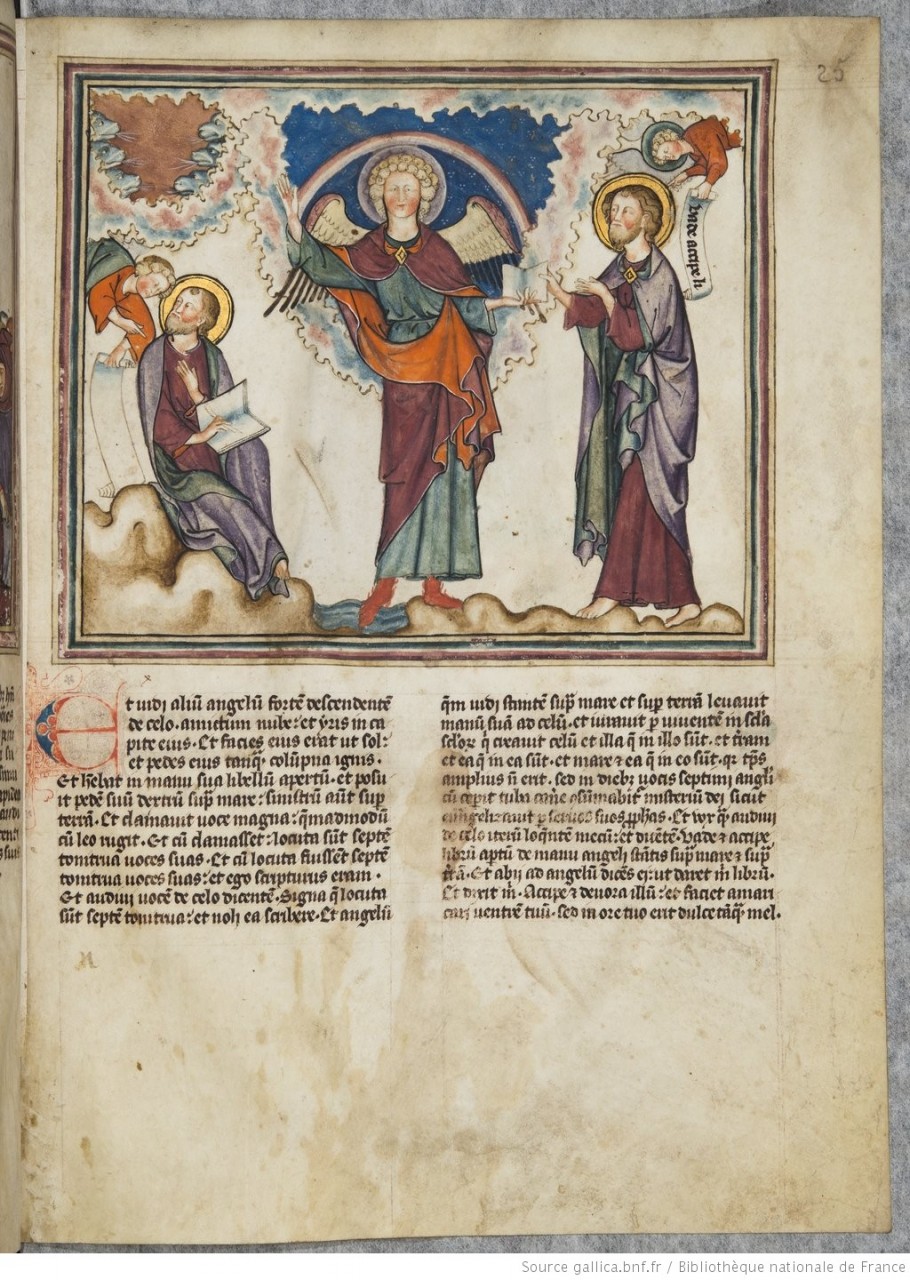 25
vade accipe li
Et uidi aliū angelū fortē descendentē
de celo. amictum nube: et yris in ca
pite eius. Et facies eius erat ut sol:
et pedes eius tanq̄ columpna ignis.
Et hēbat in manu sua libellū apertū. et posu
it pedē suū dextrū sup̄ mare: sinistrū aūt sup
terrā. Et clamauit uoce magna: q̄madmodū
cū leo rugit. Et cū clamasset: locuta sūt septē
tonitrua voces suas. Et cū locuta fuissēt septē
tonitrua uoces suas: et ego scripturus eram.
Et audiui uocē de celo dicentē. Signa q̄ locuta
sūt septē tonitrua: et noli ea scribere. Et angelū
q̄m uidi stantē sup̄ mare et sup terrā leuauit
manū suā ad celū. et iurauit p uiuentē in scl̄a
scl̄oꝝ q̄ creauit celū et illa q̄ in illo sūt. et t̄ram
et ea q̄ in ea sūt. et mare ⁊ ea q̄ in eo sūt. qꝛ tp̄s
amplius n̄ erit. sed in dieb; uocis septimi angl̄i
cū cep̄it tuba cane͛ ↄsūmabit͛ misteriū dei sicut
euangelizauit p seruos suos ꝓphas. Et vox q̄ audiui
de celo iterū loq̄ntē mecū: et dicētē. Vade ⁊ accipe
librū aptū de manu angeli stātis sup̄ mare ⁊ sup̄
t̄rā. Et abii ad angelū dicēs ei: ut daret m̄ librū.
Et dixit m̄. Accipe ⁊ deuora illū: et faciet amari
cari uentrē tuū. sed in ore tuo erit dulce tāq̄ mel.
Source gallica.bnf.fr / Bibliothèque nationale de France